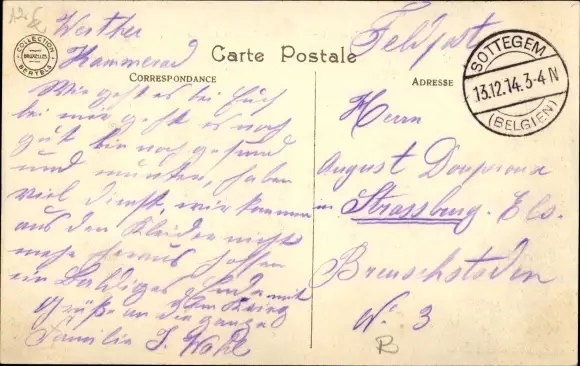 Carte Postale
CORRESPONDANCE
ADRESSE
COLLECTION
BRUXELLES
BERTELS
SOTTEGEM
13.12.14.3-4 N
(BELGIEN)
Feldpost
Werther
Kammerad
Wie geht es bei Euch
bei mir geht es noch
gut bin noch gesund
und munter, haben
viel dienst, wir kommen
aus den Kleider nicht
mehr heraus hoffen
ein Baldiges Ende mit
dem Krieg
Grüße an die ganze
Familie J. Wahl
Herrn
August
in Strassburg. Els.
N. 3